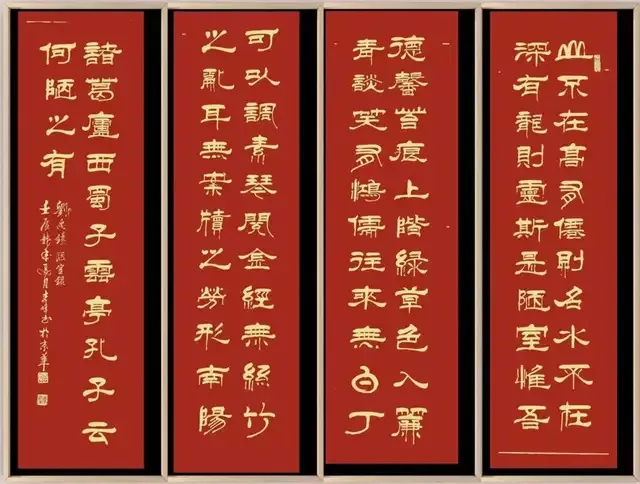 山不在高有僊則名水不在
深有龍則靈斯是陋室惟吾
德馨苔痕上階綠草色入簾
青談笑有鴻儒往來無白丁
可以調素琴閱金經無絲竹
之亂耳無案牘之勞形南陽
諸葛廬西蜀子雲亭孔子云
何陋之有
劉禹錫陋室銘
壬辰 月 書於京華